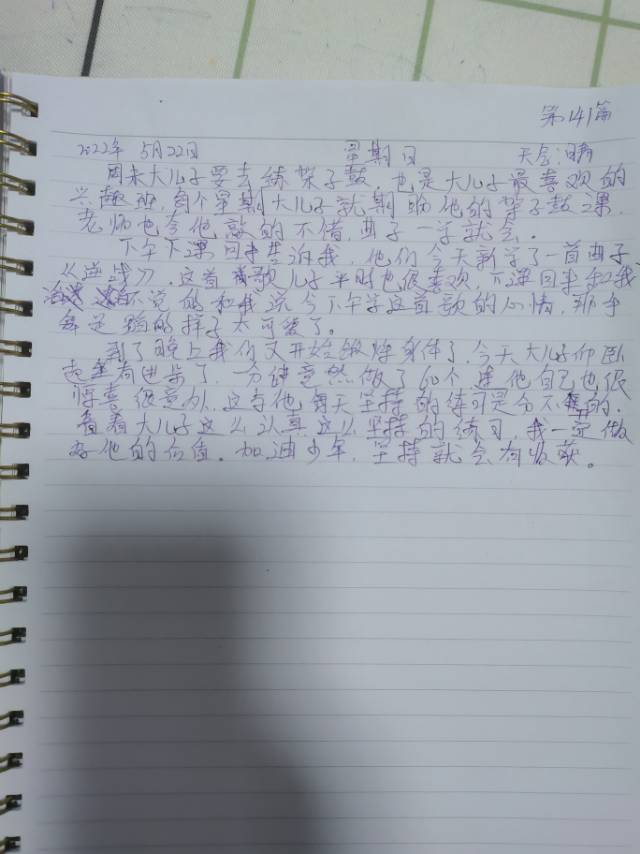 第141篇
2022年 5月22日 星期日 天气:晴
周末大儿子要去练架子鼓,也是大儿子最喜欢的
兴趣班,每个星期大儿子就期盼他的架子鼓课,
老师也夸他敲的不错,曲子一学就会。
下午下课回来告诉我,他们今天新学了一首曲子
《逆战》,这首歌儿子平时也很喜欢,下课回来和我
说的和我说今下午学这首歌的心情,那手
舞足蹈的样子太可爱了。
到了晚上我们又开始锻炼身体了,今天大儿子仰卧
起坐有进步了,一分钟竟然做了60个连他自己也很
惊喜很意外,这与他每天坚持的练习是分不开的,
看着大儿子这么认真这么坚持的练习,我一定做
好他的后盾。加油少年,坚持就会有收获。